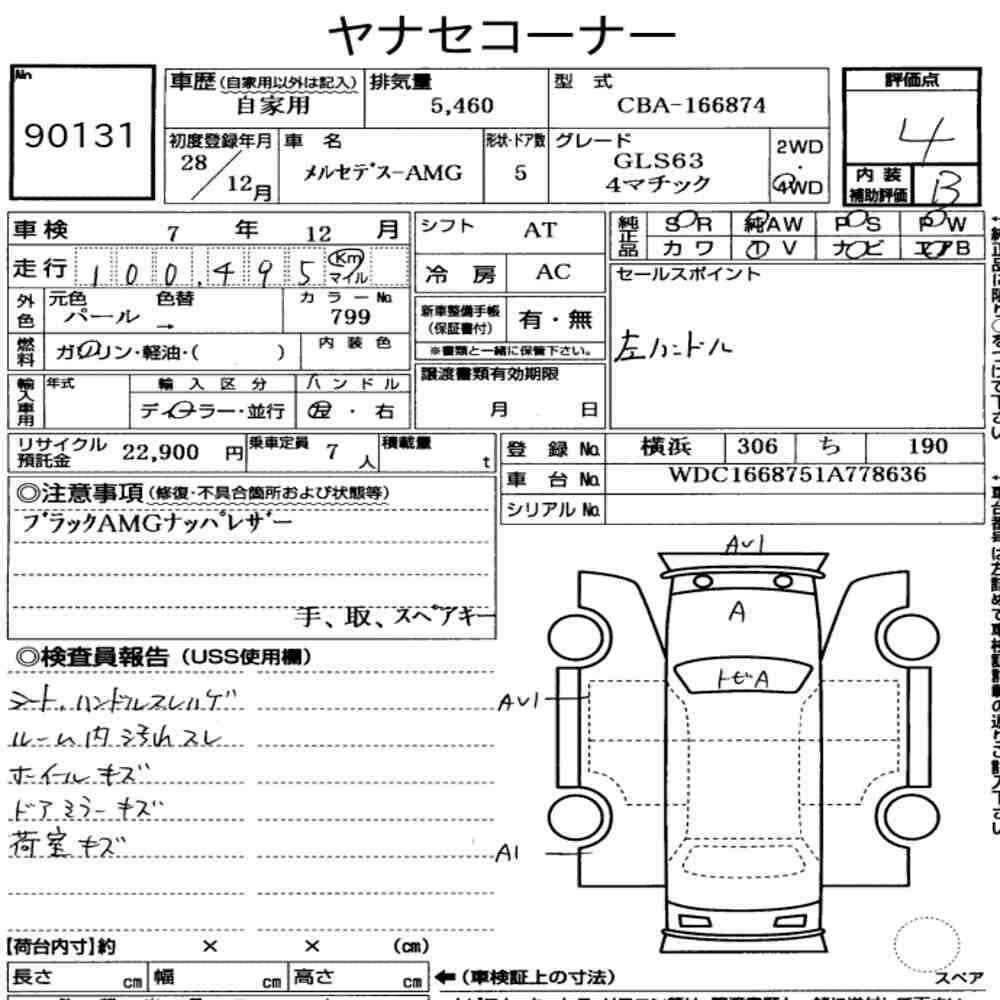 ヤナセコーナー
No.
90131
車歴(自家用以外は記入)
自家用
排気量
5,460
型 式
CBA-166874
評価点
4
初度登録年月
28/12月
車 名
メルセデス-AMG
形状・ドア数
5
グレード
GLS63
4マチック
2WD
・
4WD
内 装
補助評価
B
車検 7 年 12 月
走行 100,495 Km
マイル
外色
元色 色替
パール →
カラーNo.
799
燃料
ガソリン・軽油・( )
内装色
輸入車用
年式
輸入区分
ディーラー・並行
ハンドル
左・右
シフト AT
冷房 AC
新車整備手帳
(保証書付)
有・無
※書類と一緒に保管下さい。
譲渡書類有効期限
月 日
純正品
SR 純AW PS PW
カワ TV ナビ エアB
セールスポイント
左ハンドル
リサイクル
預託金
22,900 円
乗車定員 7 人
積載量 t
登録No. 横浜 306 ち 190
車台No. WDC1668751A778636
シリアルNo.
◎注意事項(修復・不具合箇所および状態等)
ブラックAMGナッパレザー
手、取、スペアキー
◎検査員報告(USS使用欄)
シート、ハンドルスレハゲ
ルーム内汚れスレ
ホイールキズ
ドアミラーキズ
荷室キズ
AU1
A
トビA
AU1
A1
スペア
【荷台内寸】約 × × (cm)
長さ cm 幅 cm 高さ cm
←(車検証上の寸法)